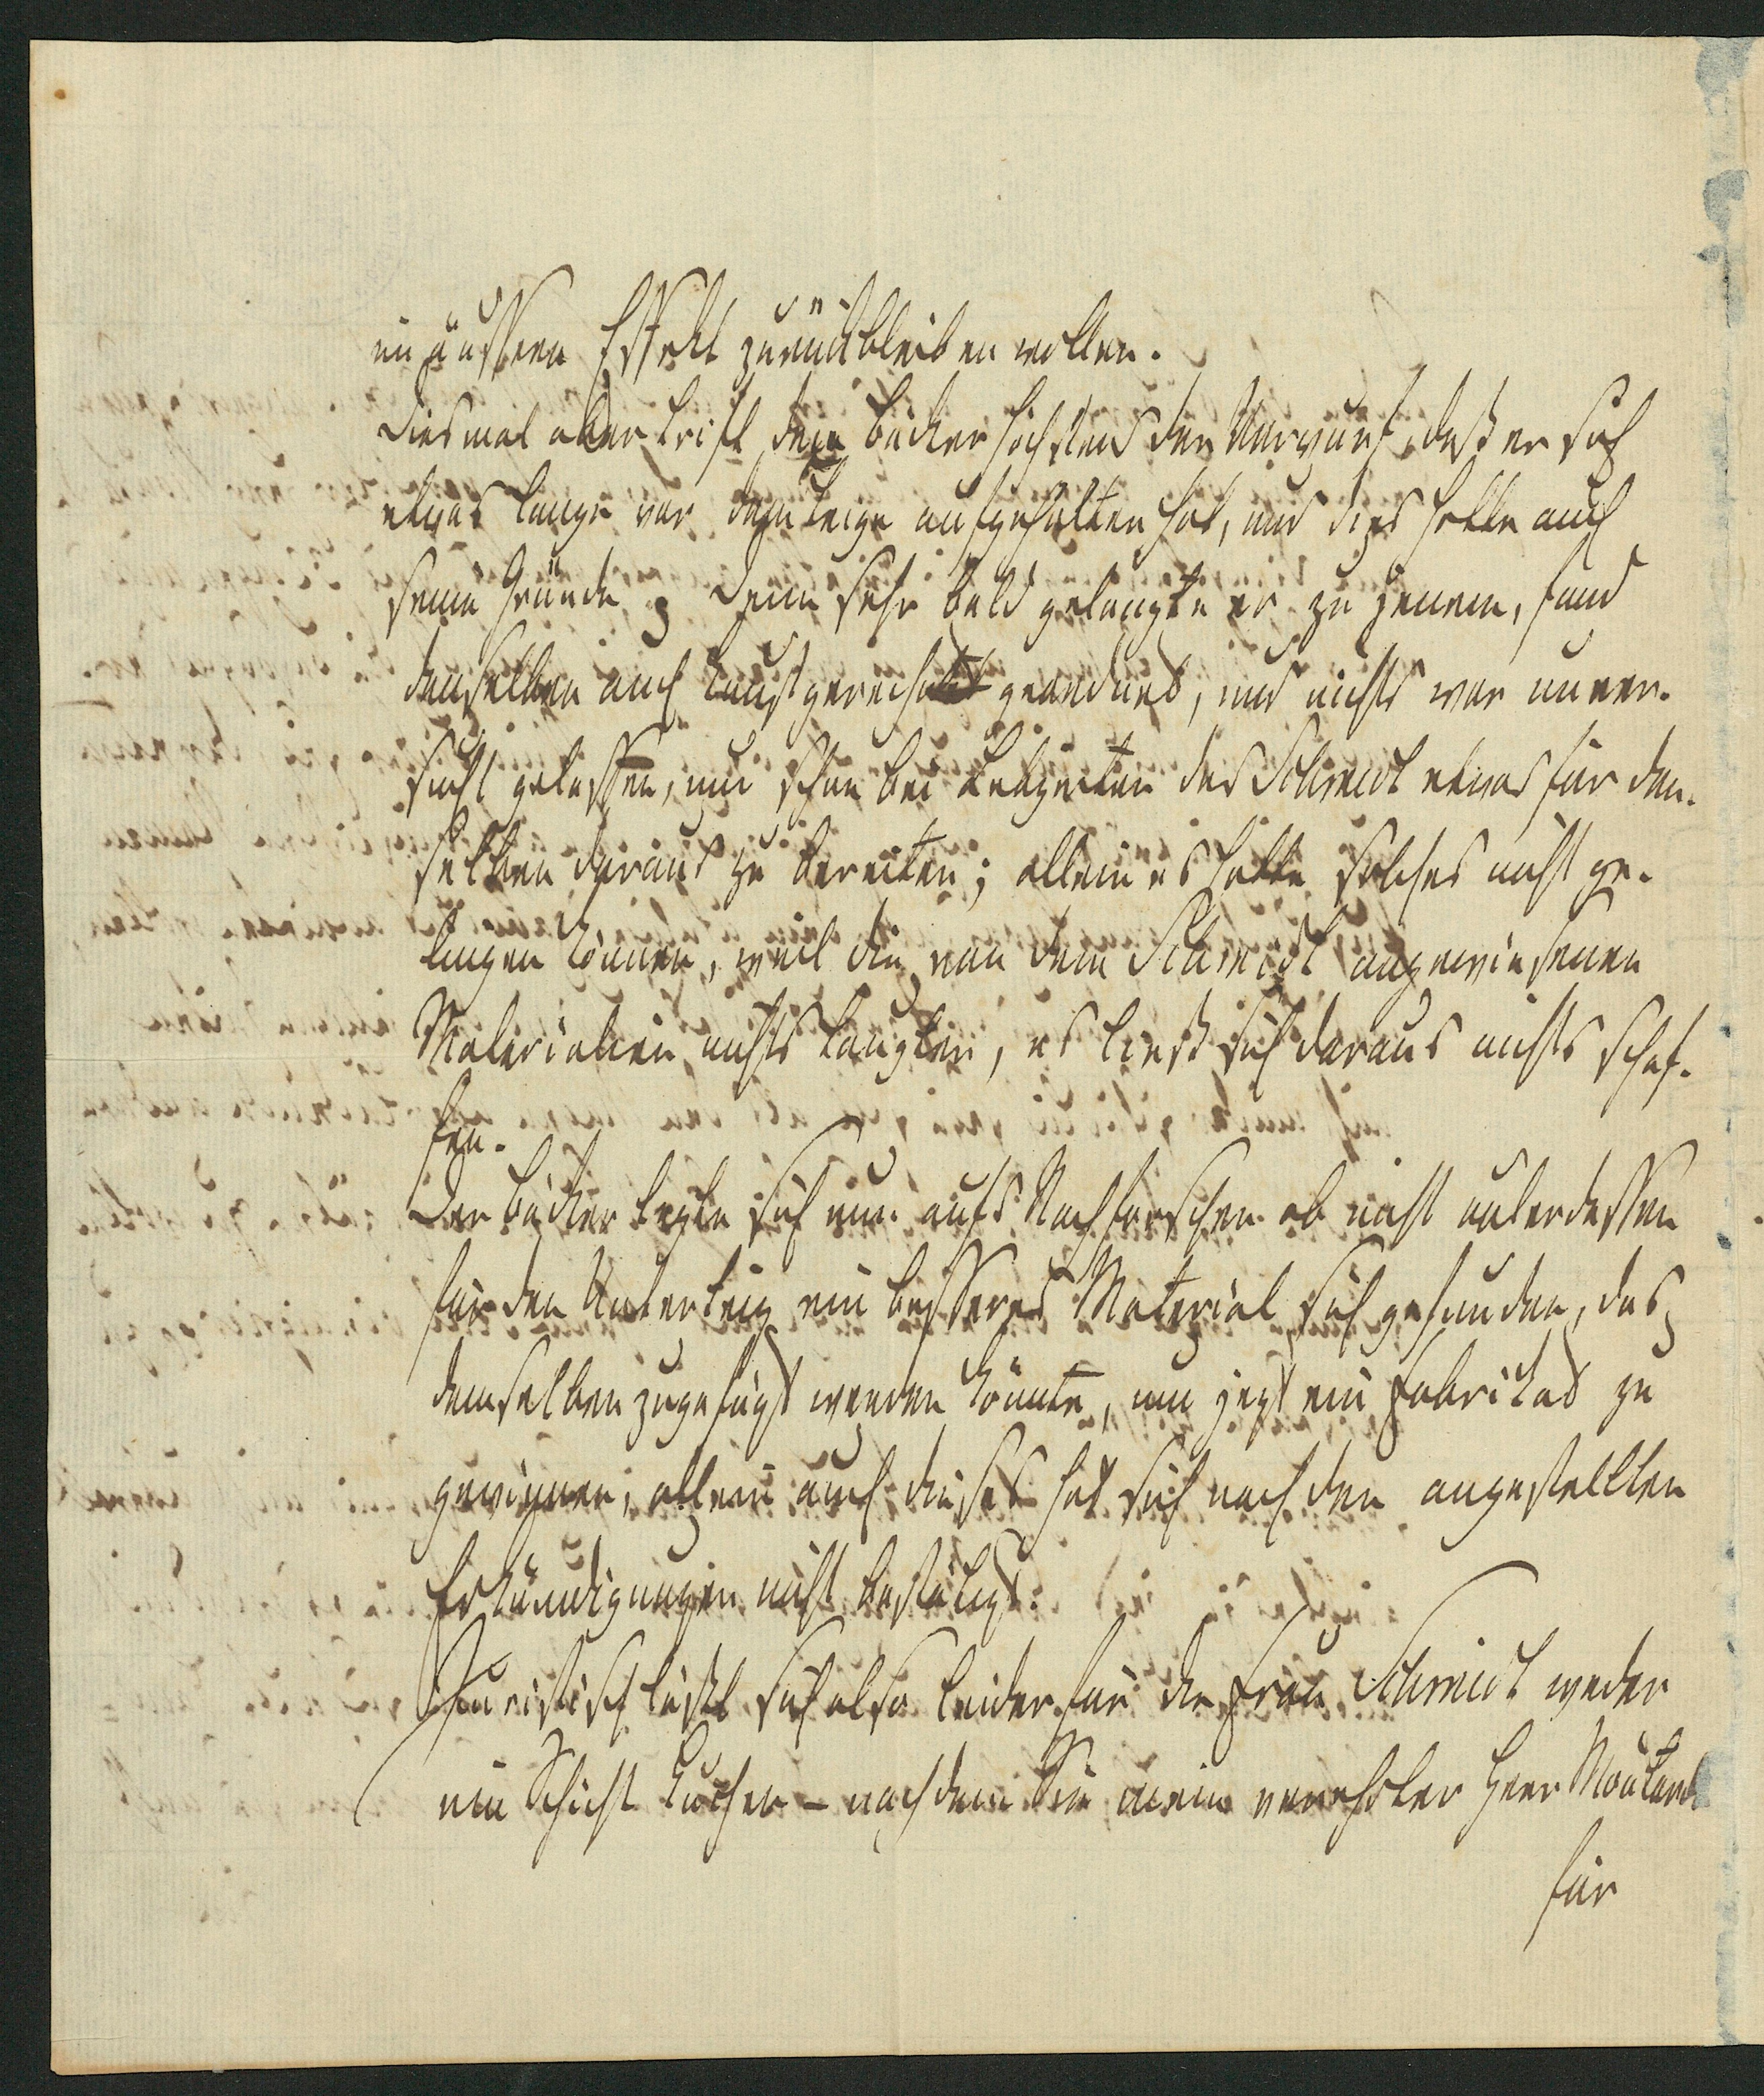 im äussern Effekt zurückbleiben wollen.
Diesmal aber trift dem Bäcker höchstens der Vorwurf, daß er sich
etwas lange vor dem Teige aufgehalten hat, und dies hatte auch
seine Gründe; denn sehr bald gelangte er zu jenem, fand
denselben auch kunstgerecht geordnet, und nichts war unver-
sucht gelassen, um schon bei Lebzeiten des Schmidt etwas für den-
selben daraus zu bereiten; allein es hatte solches nicht ge-
lingen können, weil die von dem Schmidt angewiesenen
Materialien nichts taugten, es ließ sich daraus nichts schaf-
fen.
Der Bäcker legte sich nun aufs Nachforschen ob nicht unterdessen
für den Unterteig ein besseres Material sich gefunden, das
demselben zugefügt werden könnte, um jezt ein Fabrikat zu
gewinnen; allein auch dieses hat sich nach den angestellten
Erkundigungen nicht bestätigt.
Juristisch läßt sich also leider für die Frau Schmidt weder
ein Schicht Kuchen – nachdem Sie mein verehrter Herr
für